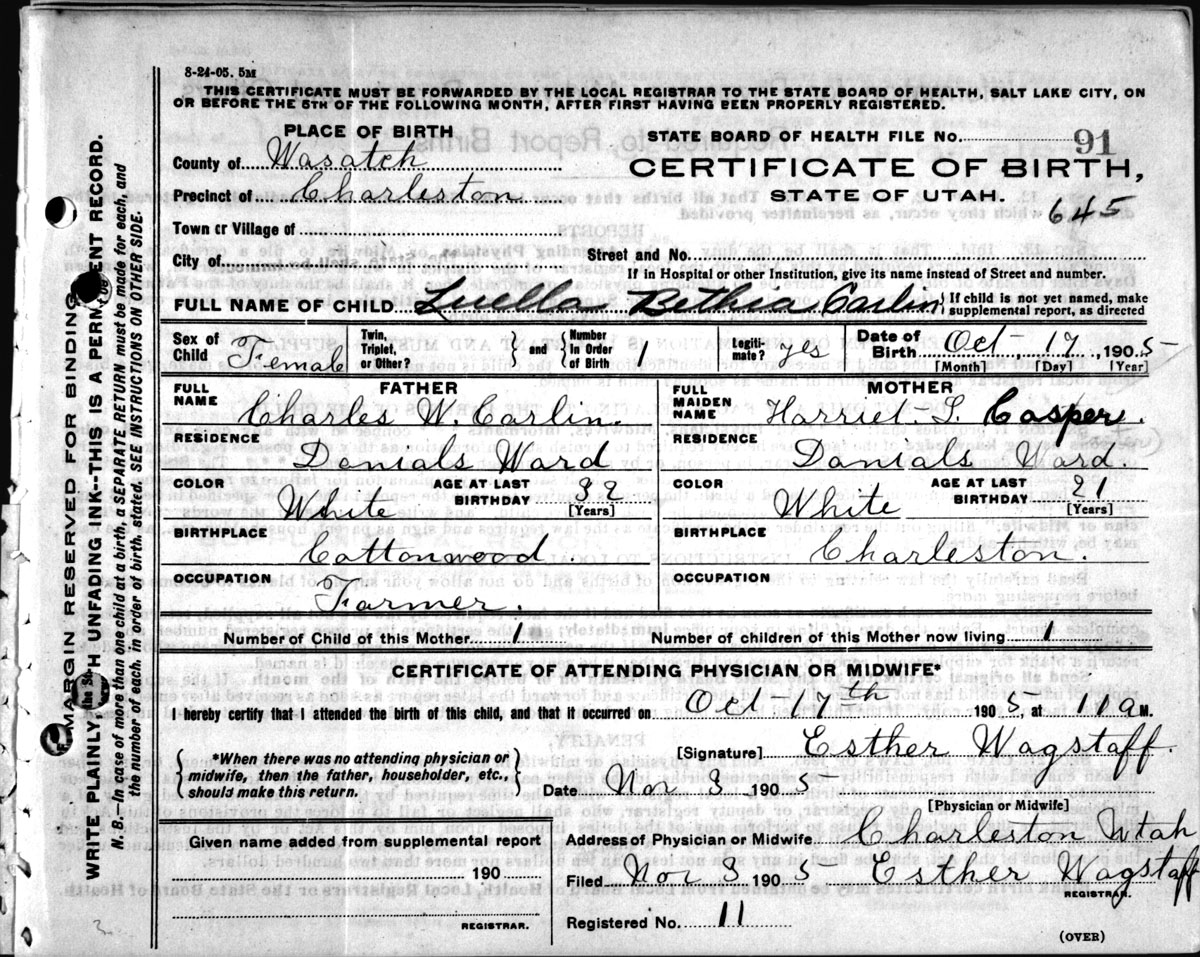 8-24-05. 5M
THIS CERTIFICATE MUST BE FORWARDED BY THE LOCAL REGISTRAR TO THE STATE BOARD OF HEALTH, SALT LAKE CITY, ON
OR BEFORE THE 5TH OF THE FOLLOWING MONTH, AFTER FIRST HAVING BEEN PROPERLY REGISTERED.
PLACE OF BIRTH
County of Wasatch
Precinct of Charleston
Town or Village of
City of
STATE BOARD OF HEALTH FILE NO. 91
CERTIFICATE OF BIRTH,
STATE OF UTAH.
645
Street and No.
If in Hospital or other Institution, give its name instead of Street and number.
FULL NAME OF CHILD Luella Bethea Carlin { If child is not yet named, make
supplemental report, as directed
Sex of Child Female
Twin, Triplet, or Other? } and { Number in Order of Birth 1
Legitimate? yes
Date of Birth Oct 17, 1905
[Month] [Day] [Year]
FATHER
FULL NAME Charles W. Carlin
RESIDENCE Danials Ward
COLOR White AGE AT LAST BIRTHDAY 32 [Years]
BIRTHPLACE Cottonwood.
OCCUPATION Farmer.
MOTHER
FULL MAIDEN NAME Harriet S. Casper.
RESIDENCE Danials Ward.
COLOR White AGE AT LAST BIRTHDAY 21 [Years]
BIRTHPLACE Charleston.
OCCUPATION
Number of Child of this Mother 1 Number of children of this Mother now living 1
CERTIFICATE OF ATTENDING PHYSICIAN OR MIDWIFE*
I hereby certify that I attended the birth of this child, and that it occurred on Oct 17th 1905, at 11 a M.
{ *When there was no attending physician or
midwife, then the father, householder, etc.,
should make this return. }
[Signature] Esther Wagstaff.
Date Nov 3 1905
[Physician or Midwife]
Given name added from supplemental report
190
REGISTRAR.
Address of Physician or Midwife Charleston Utah
Filed Nov 3 1905 Esther Wagstaff
REGISTRAR.
Registered No. 11
(OVER)
MARGIN RESERVED FOR BINDING
WRITE PLAINLY WITH UNFADING INK--THIS IS A PERMANENT RECORD.
N. B.--In case of more than one child at a birth, a SEPARATE RETURN must be made for each, and
the number of each, in order of birth, stated. SEE INSTRUCTIONS ON OTHER SIDE.